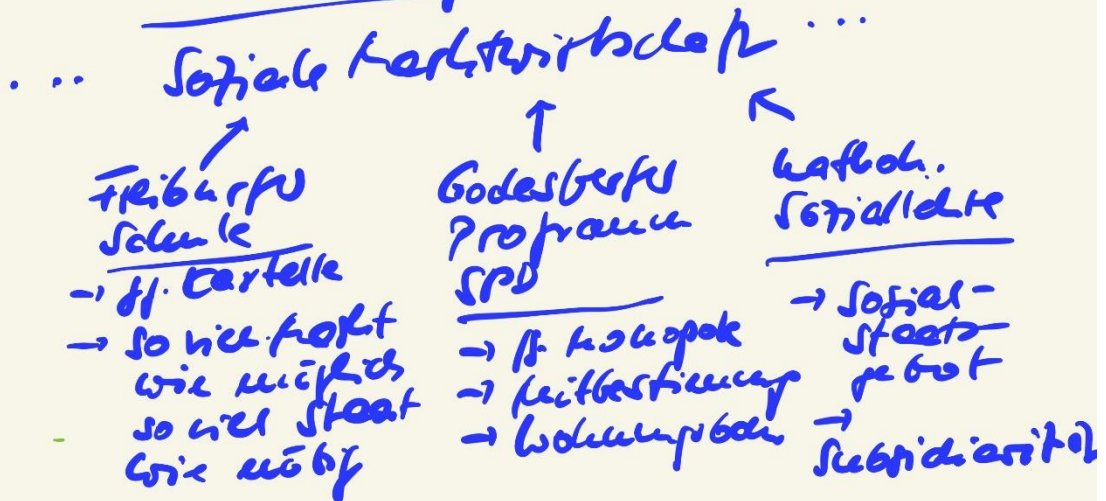 ... Soziale Marktwirtschaft ...
Freiburger
Schule
→ gg. Kartelle
→ so viel Markt
wie möglich
so viel Staat
wie nötig
Godesberger
Programm
SPD
→ gg. Monopole
→ Mitbestimmung
→ Wohnungsbau
kathol.
Soziallehre
→ Sozial-
staats-
gebot
→
Subsidiarität